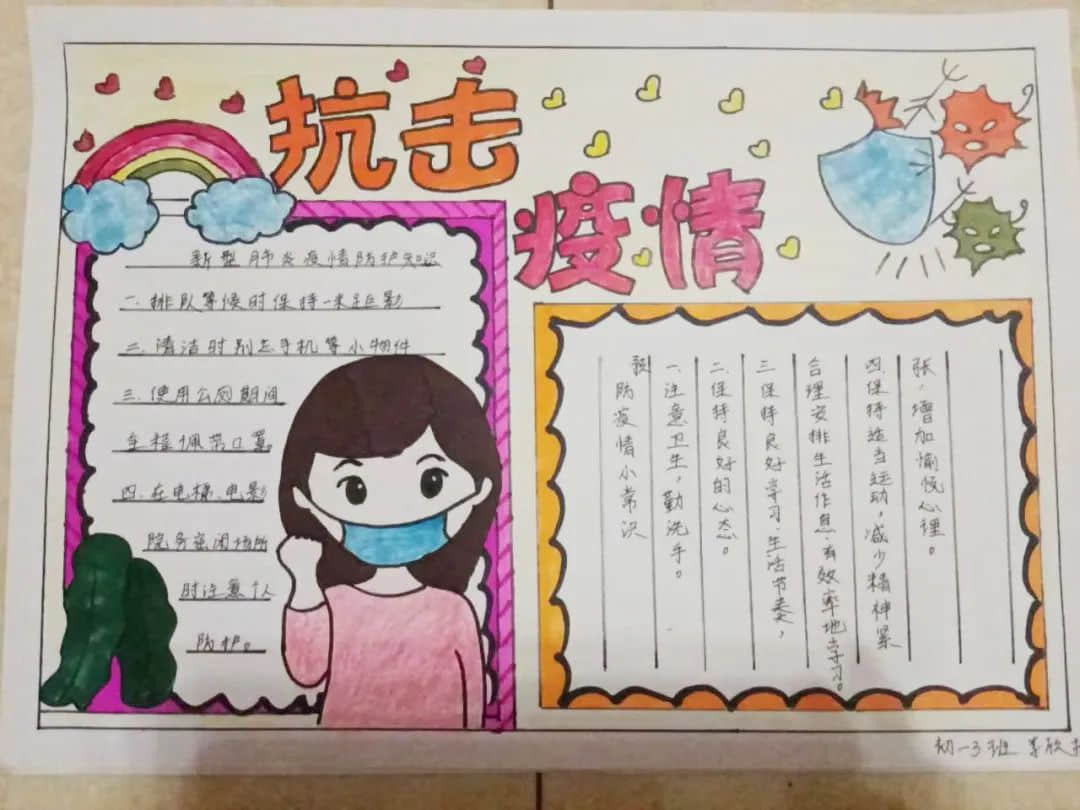 抗击
疫情
新型肺炎疫情防护知识
一.排队等候时保持一米距离
二.清洁时别忘手机等小物件
三.使用公厕期间
全程佩带口罩
四.在电梯、电影
院务密闭场所
时注意个人
防护。
预防疫情小常识
一.注意卫生,勤洗手。
二.保持良好的心态。
三.保持良好学习.生活节奏,
合理安排生活作息.有效率地学习。
四.保持适当运动,减少精神紧
张,增加愉悦心理。
初一3班 李欣